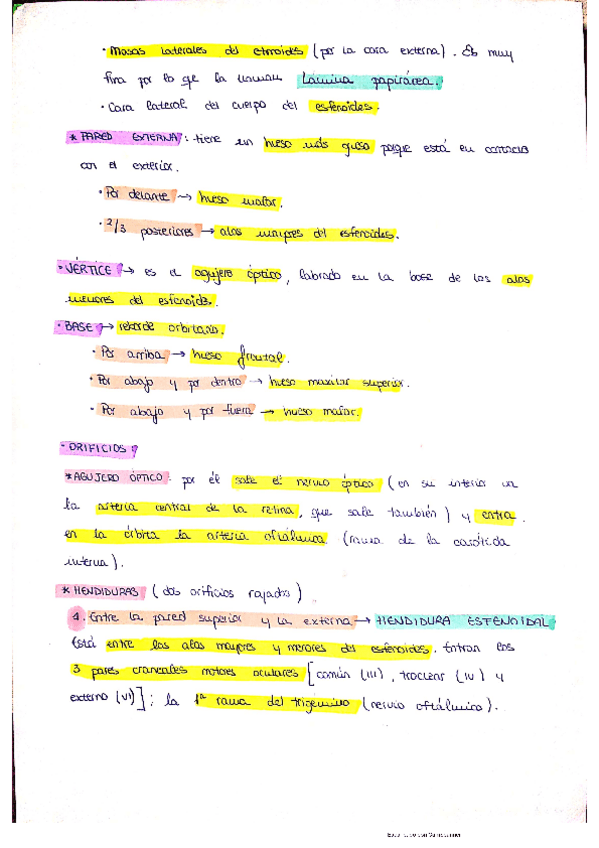 · Masas laterales del etmoides (por la cara externa). Es muy
fina por lo qe la llaman Lámina papirácea.
· Cara lateral del cuerpo del esfenoides.
* PARED EXTERNA: tiene un hueso más grueso porque está en contacto
con el exterior.
· Por delante → hueso malar.
· 2/3 posteriores → alas mayores del esfenoides.
· VÉRTICE → es el agujero óptico, labrado en la base de las alas
menores del esfenoide.
· BASE → reborde orbitario.
· Por arriba → hueso frontal.
· Por abajo y por dentro → hueso maxilar superior.
· Por abajo y por fuera → hueso malar.
· ORIFICIOS:
* AGUJERO ÓPTICO: por él sale el nervio óptico (en su interior va
la arteria central de la retina, que sale también) y entra
en la órbita la arteria oftálmica (rama de la carótida
interna).
* HENDIDURAS (dos orificios rajados)
1. Entre la pared superior y la externa → HENDIDURA ESFENOIDAL
Está entre las alas mayores y menores del esfenoides. Entran los
3 pares craneales motores oculares [común (III), troclear (IV) y
externo (VI)]; la 1ª rama del trigémino (nervio oftálmico).